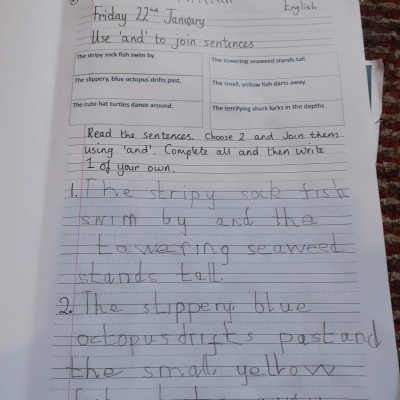 English
Friday 22nd January
Use 'and' to join sentences
The stripy sock fish swim by.
The towering seaweed stands tall.
The slippery, blue octopus drifts past.
The small, yellow fish darts away.
The cute hat turtles dance around.
The terrifying shark lurks in the depths.
Read the sentences. Choose 2 and join them
using 'and'. Complete all and then write
1 of your own.
1. The stripy sock fish
swim by and the
towering seaweed
stands tall.
2. The slippery, blue
octopus drifts past and
the small, yellow